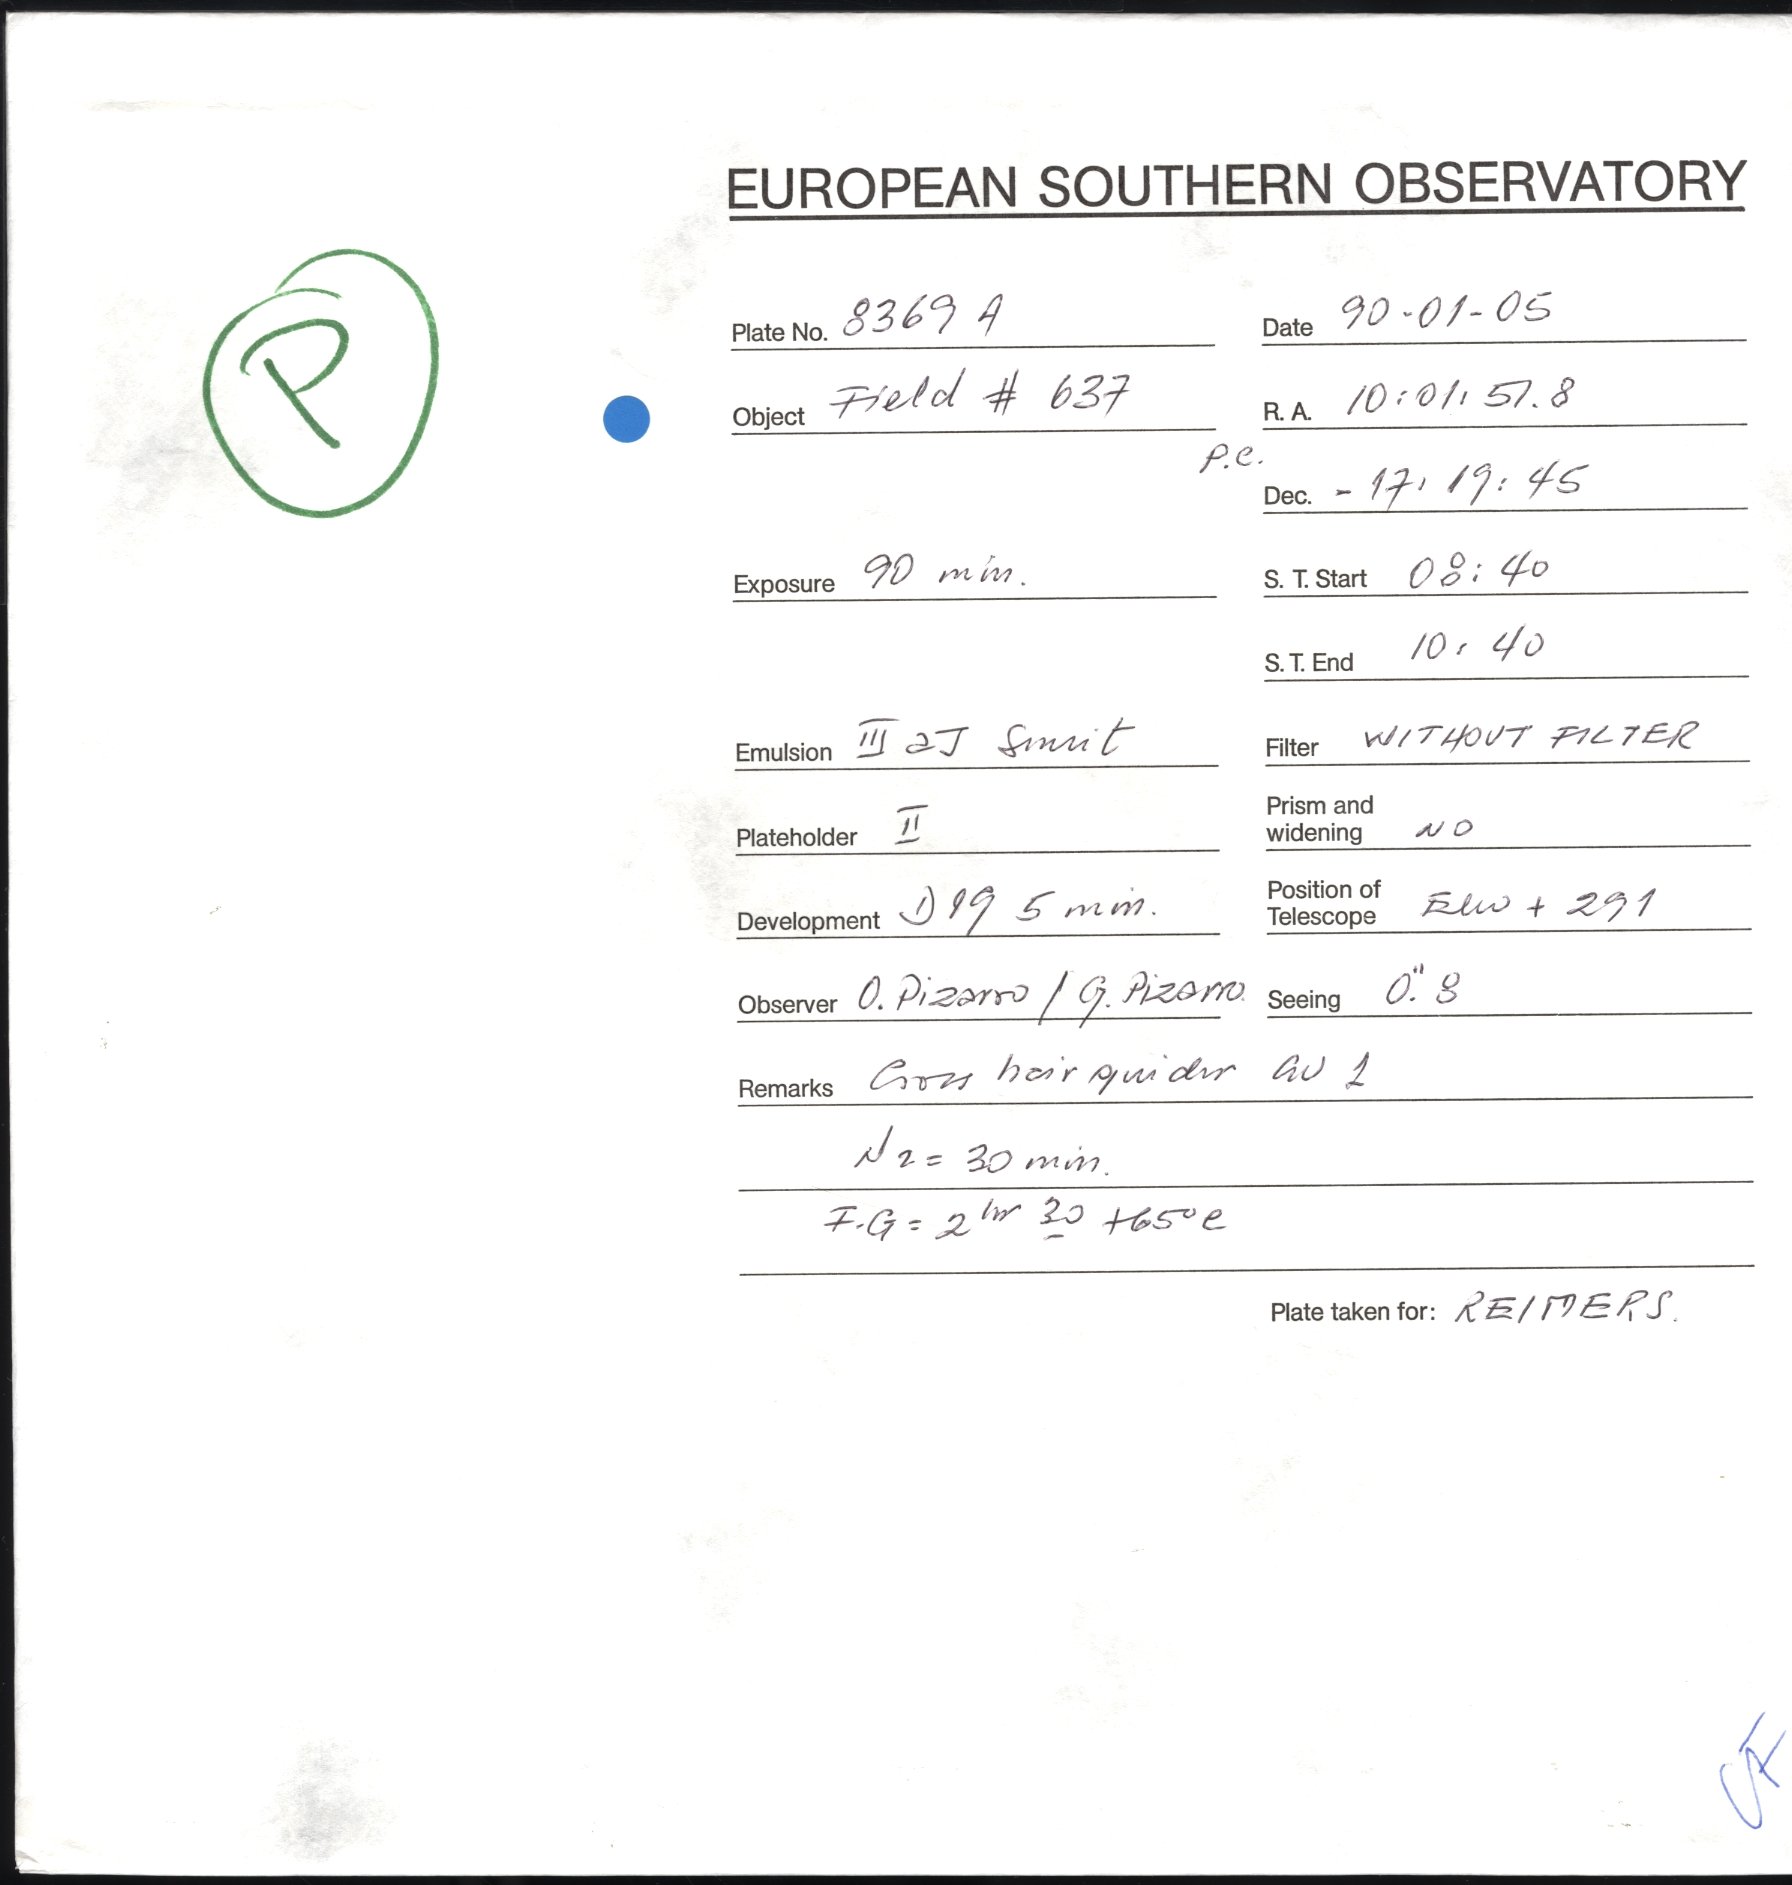 EUROPEAN SOUTHERN OBSERVATORY
P
Plate No. 8369 A
Date 90-01-05
Object Field # 637
R. A. 10:01:51.8
P.C.
Dec. -17:19:45
Exposure 90 min.
S. T. Start 08:40
S. T. End 10:40
Emulsion III aJ
Filter WITHOUT FILTER
Plateholder II
Prism and
widening NO
Development D19 5 min.
Position of
Telescope + 291
Observer O. Pizarro / G. Pizarro
Seeing 0."8
Remarks Cross hair guider 1
N2 = 30 min.
F.G = 2 hr 30 +65°C
Plate taken for: REIMERS.